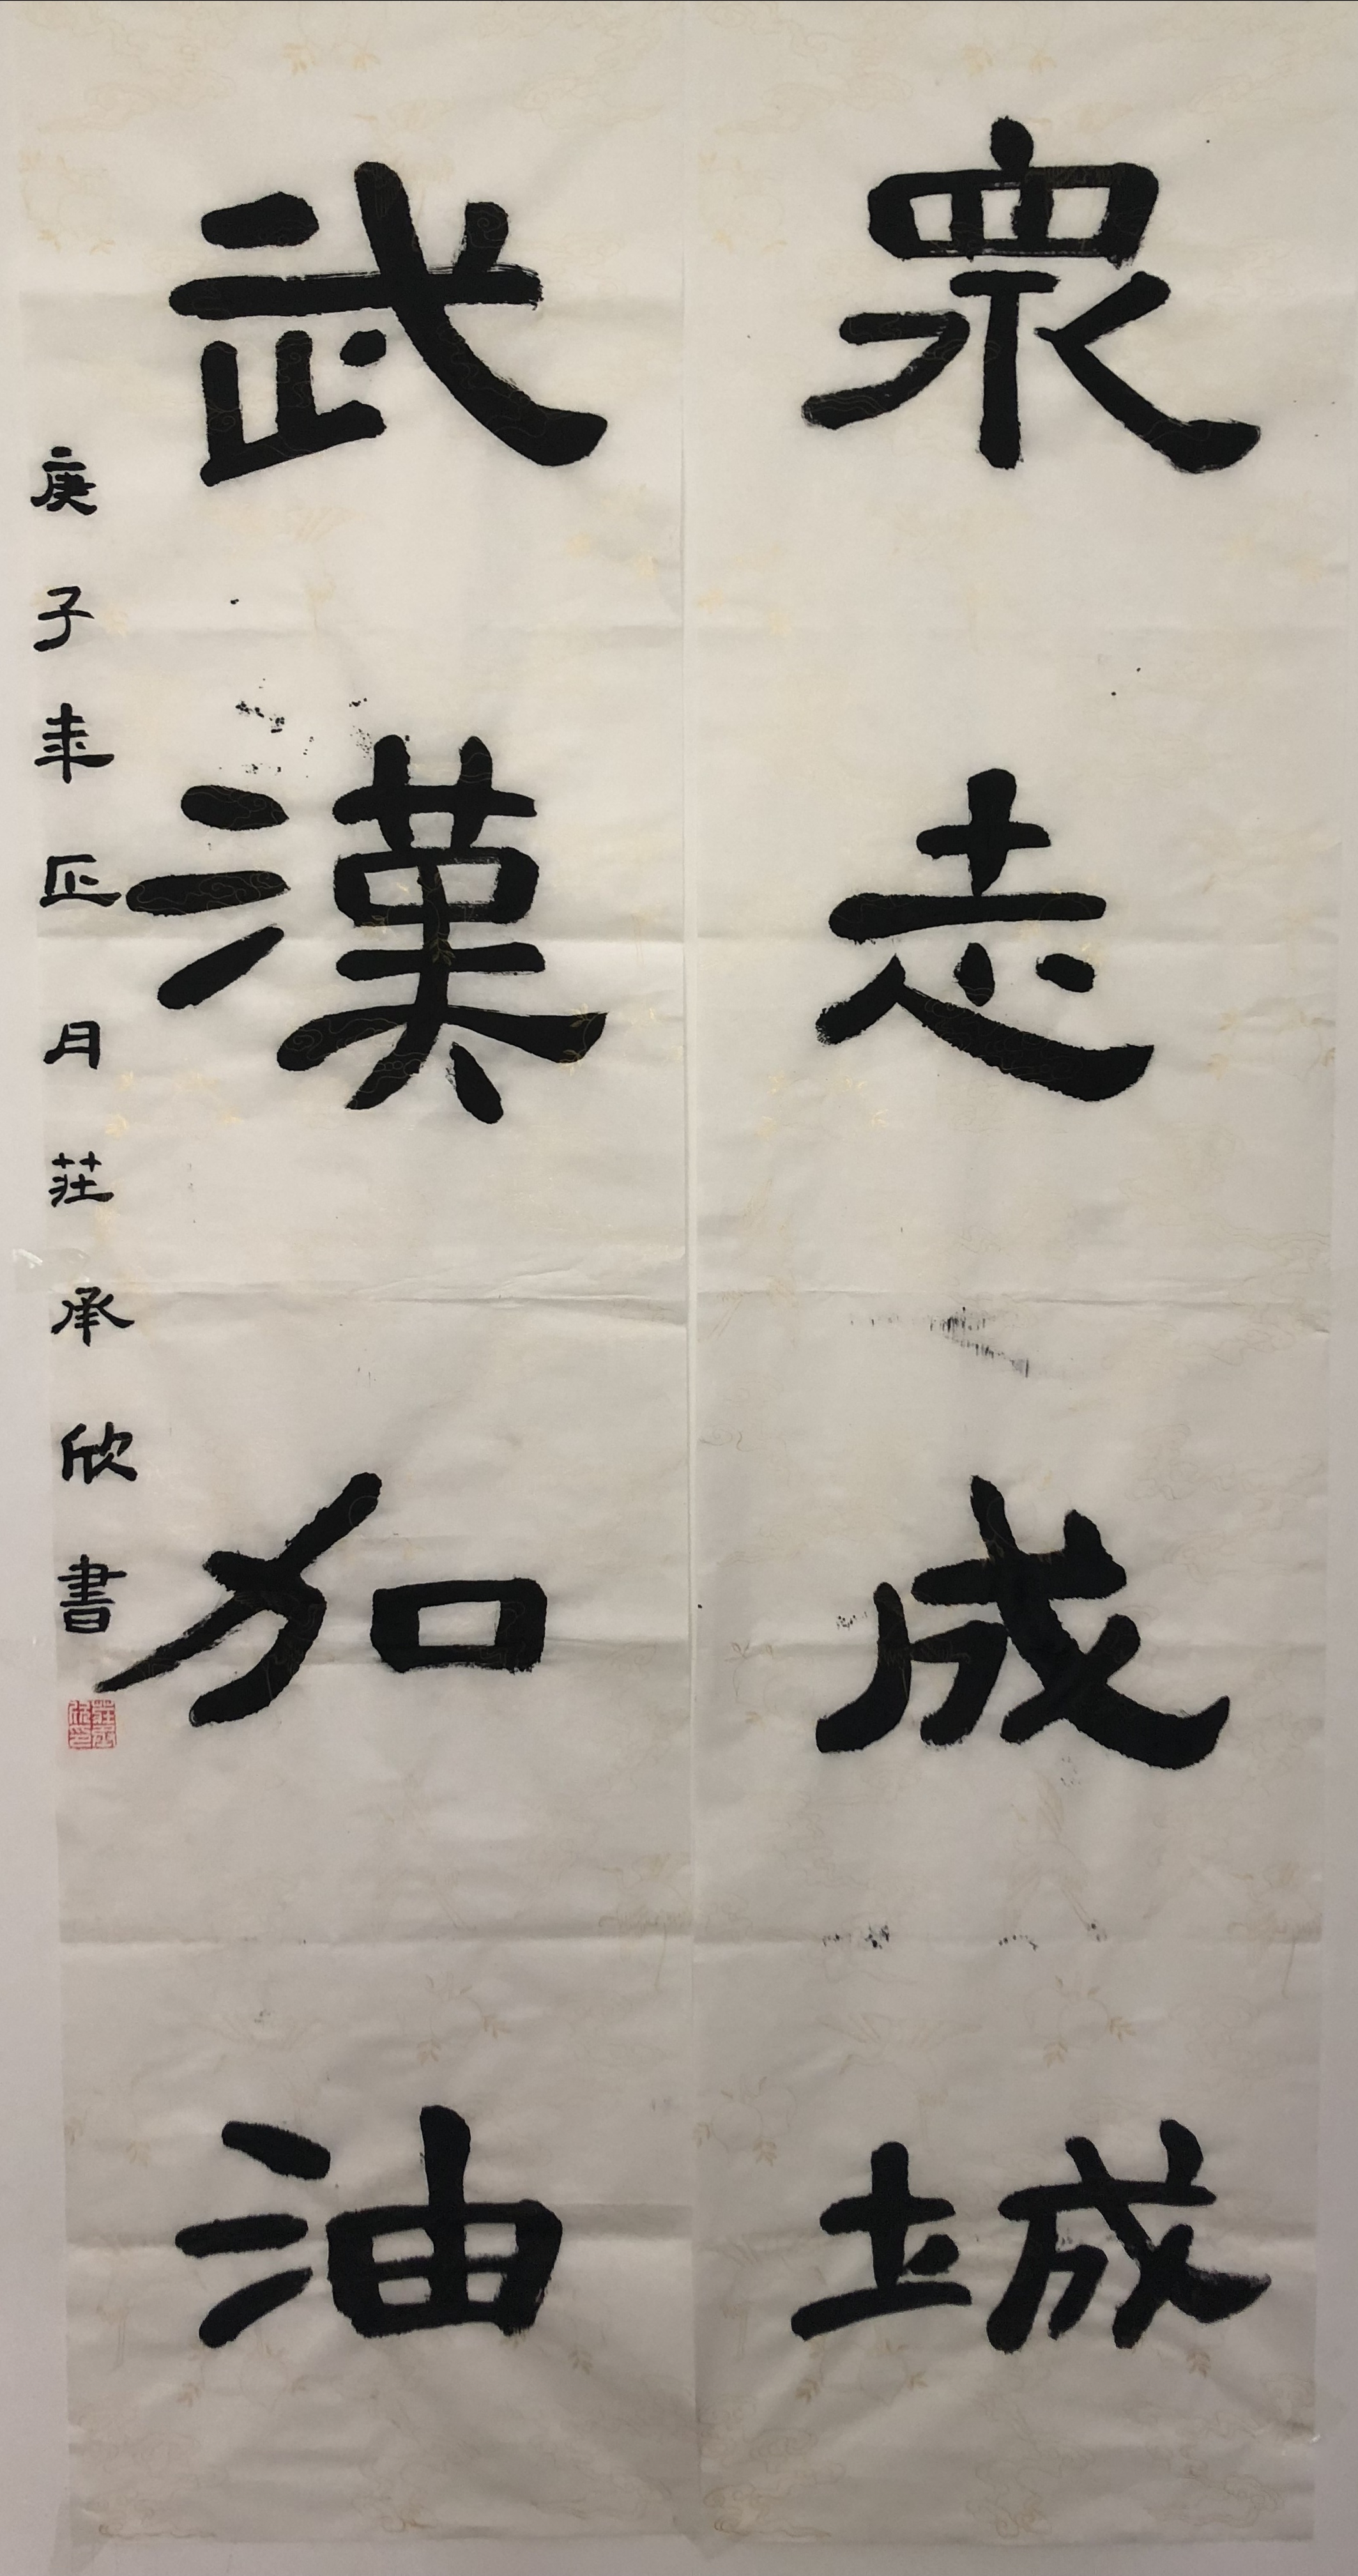 眾志成城
武漢加油
庚子年正月莊承欣書